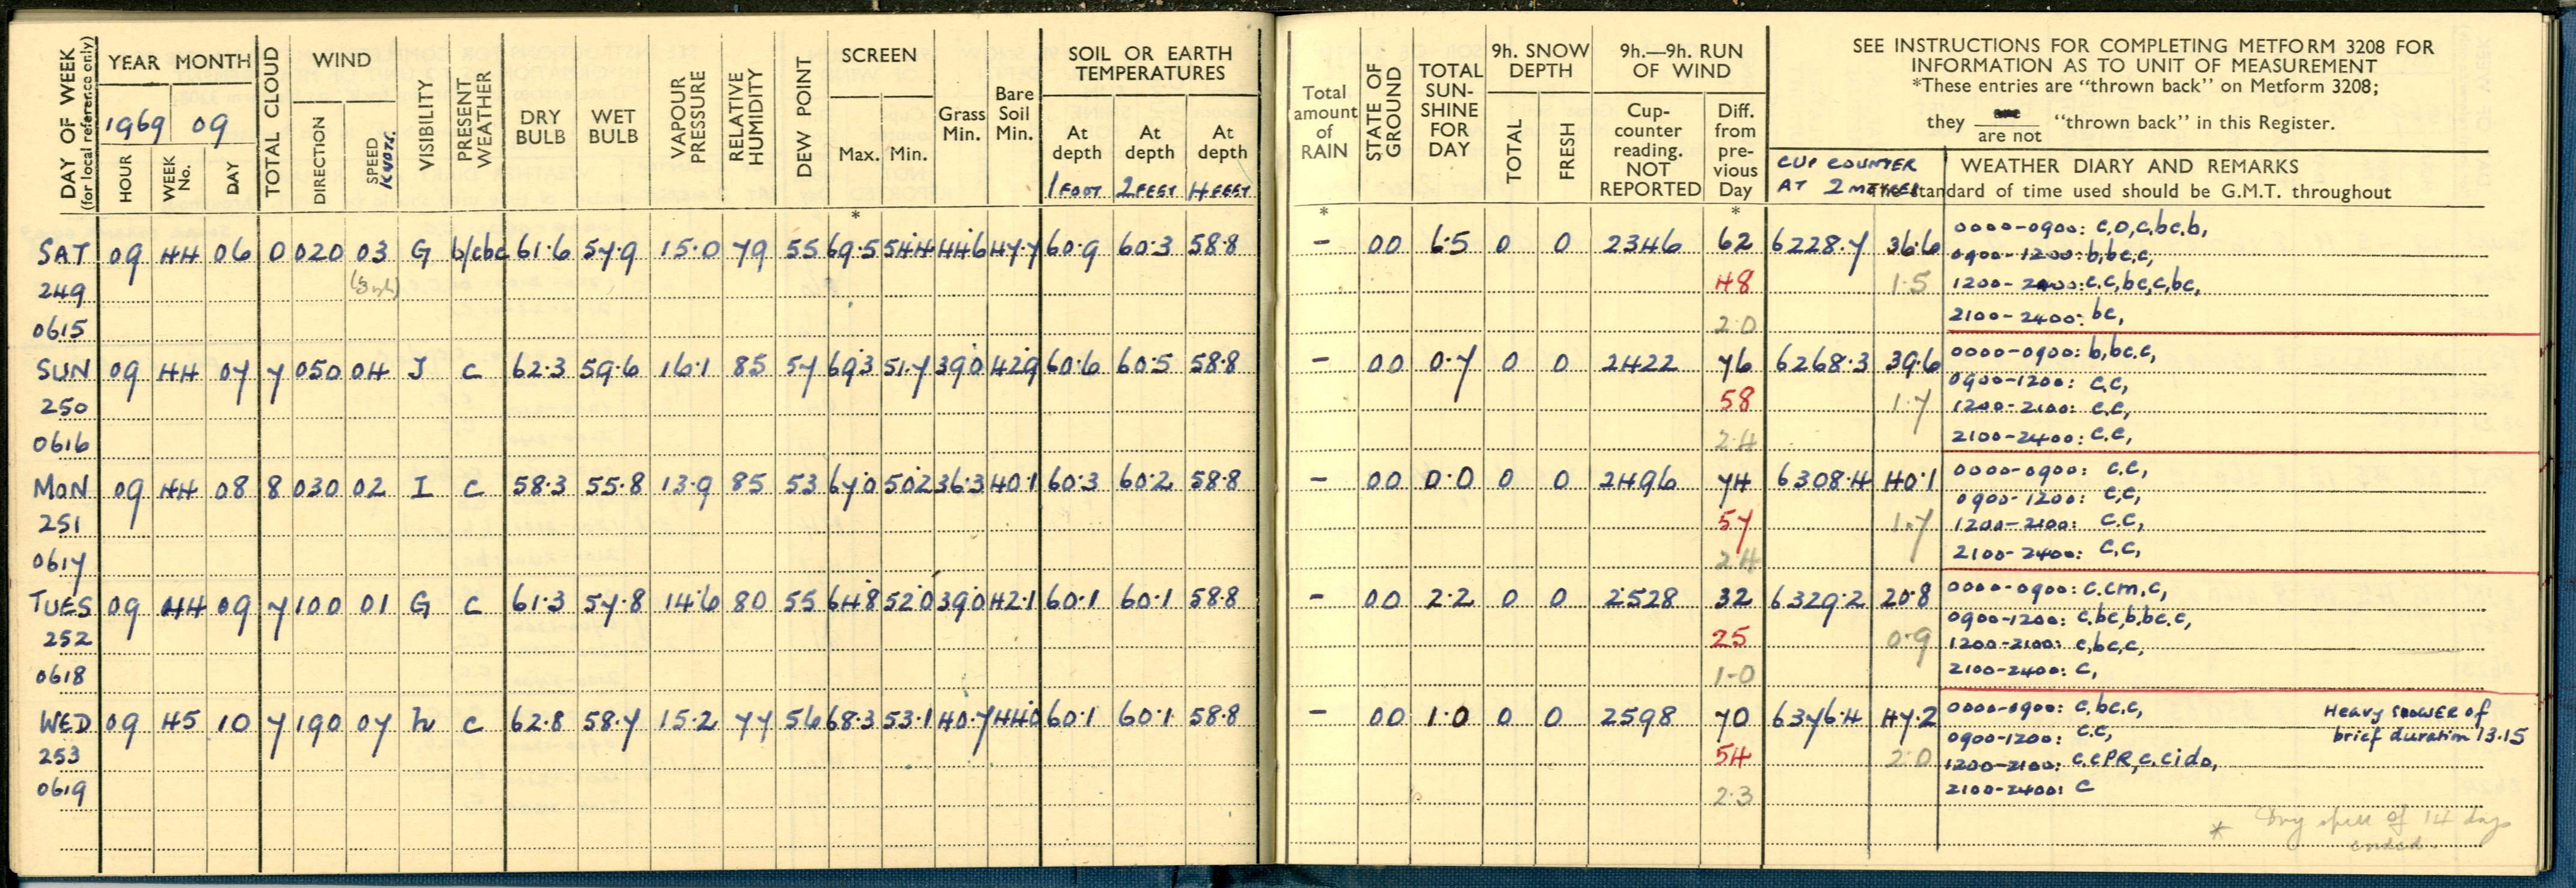 DAY OF WEEK
(for local reference only)
YEAR MONTH
1969 09
HOUR
WEEK No.
DAY
TOTAL CLOUD
WIND
DIRECTION
SPEED KNOTS.
VISIBILITY
PRESENT WEATHER
DRY BULB
WET BULB
VAPOUR PRESSURE
RELATIVE HUMIDITY
DEW POINT
SCREEN
Max. Min.
Grass Min.
Bare Soil Min.
SOIL OR EARTH TEMPERATURES
At depth At depth At depth
1 FOOT 2 FEET 4 FEET
Total amount of RAIN
STATE OF GROUND
TOTAL SUN-SHINE FOR DAY
9h. SNOW DEPTH
TOTAL
FRESH
9h.—9h. RUN OF WIND
Cup-counter reading. NOT REPORTED
Diff. from pre-vious Day
SEE INSTRUCTIONS FOR COMPLETING METFORM 3208 FOR
INFORMATION AS TO UNIT OF MEASUREMENT
*These entries are "thrown back" on Metform 3208;
they are / are not "thrown back" in this Register.
CUP COUNTER
AT 2 METRES
WEATHER DIARY AND REMARKS
The standard of time used should be G.M.T. throughout
* * *
SAT 09 44 06 0 020 03 G b/cbc 61.6 57.9 15.0 79 55 69.5 54.4 44.6 47.7 60.9 60.3 58.8 – 00 6.5 0 0 2346 62 6228.7 36.6 0000-0900: c,o,c,bc,b,
0900-1200: b,bc,c,
249 48 1.5 1200-2100: c.c,bc,c,bc,
0615 2.0 2100-2400: bc,
SUN 09 44 07 7 050 04 J c 62.3 59.6 16.1 85 57 69.3 51.7 39.0 42.9 60.6 60.5 58.8 – 00 0.7 0 0 2422 76 6268.3 39.6 0000-0900: b,bc.c,
0900-1200: c,c,
250 58 1.7 1200-2100: c.c,
0616 2.4 2100-2400: c.c,
MON 09 44 08 8 030 02 I c 58.3 55.8 13.9 85 53 67.0 50.2 36.3 40.1 60.3 60.2 58.8 – 00 0.0 0 0 2496 74 6308.4 40.1 0000-0900: c.c,
0900-1200: c,c,
251 57 1.7 1200-2100: c.c,
0617 2.4 2100-2400: c,c,
TUES 09 44 09 7 100 01 G c 61.3 57.8 14.6 80 55 64.8 52.0 39.0 42.1 60.1 60.1 58.8 – 00 2.2 0 0 2528 32 6329.2 20.8 0000-0900: c.cm.c,
0900-1200: c.bc,b.bc.c,
252 25 0.9 1200-2100: c,bc,c,
0618 1.0 2100-2400: c,
WED 09 45 10 7 190 07 h c 62.8 58.7 15.2 77 56 68.3 53.1 40.7 44.0 60.1 60.1 58.8 – 00 1.0 0 0 2598 70 6376.4 47.2 0000-0900: c,bc.c, Heavy SHOWER of
0900-1200: c.c, brief duration 13.15
253 54 2.0 1200-2100: c.cPR,c.cido,
0619 2.3 2100-2400: c
* Dry spell of 14 days
ended.